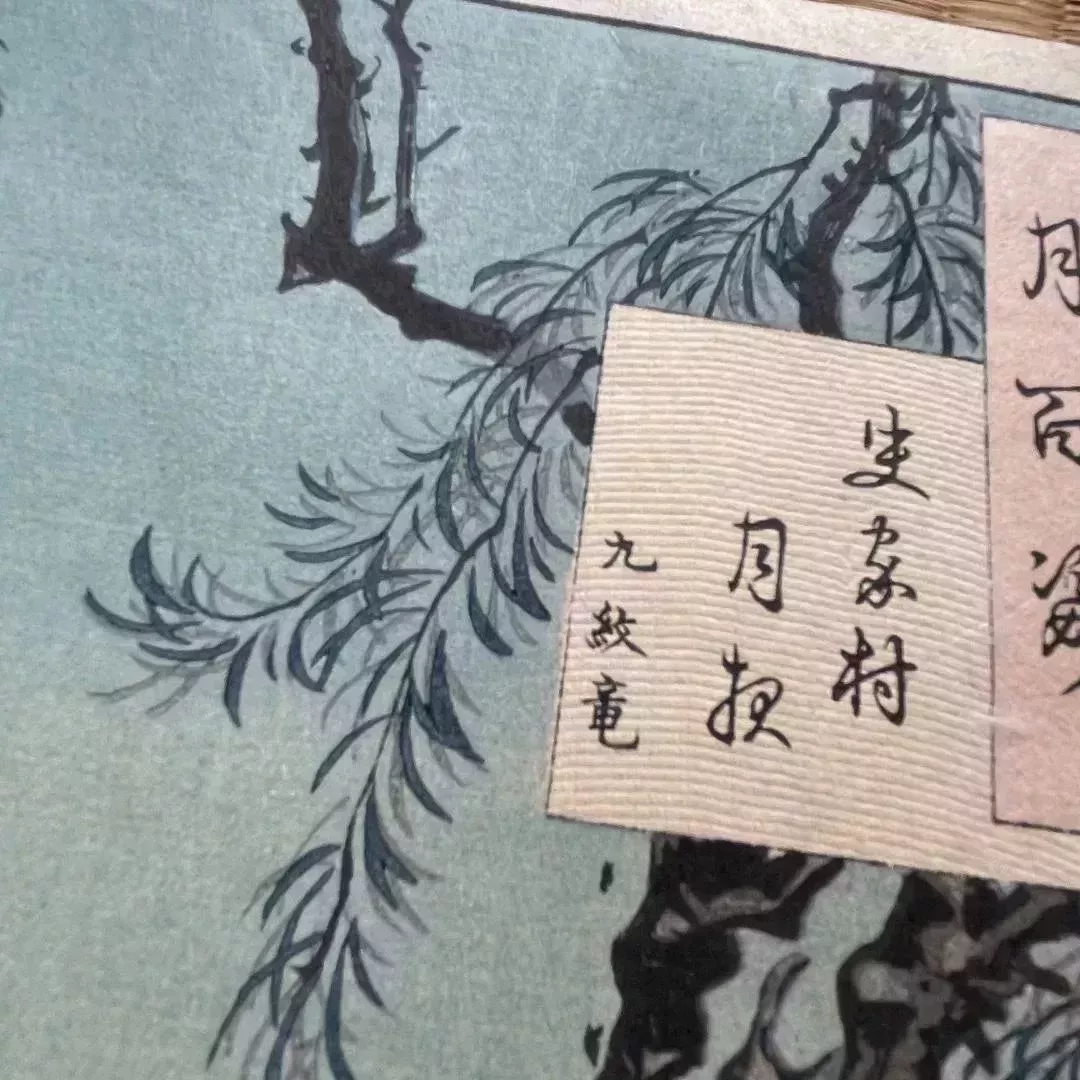 月百姿
史家村
月夜
九紋竜